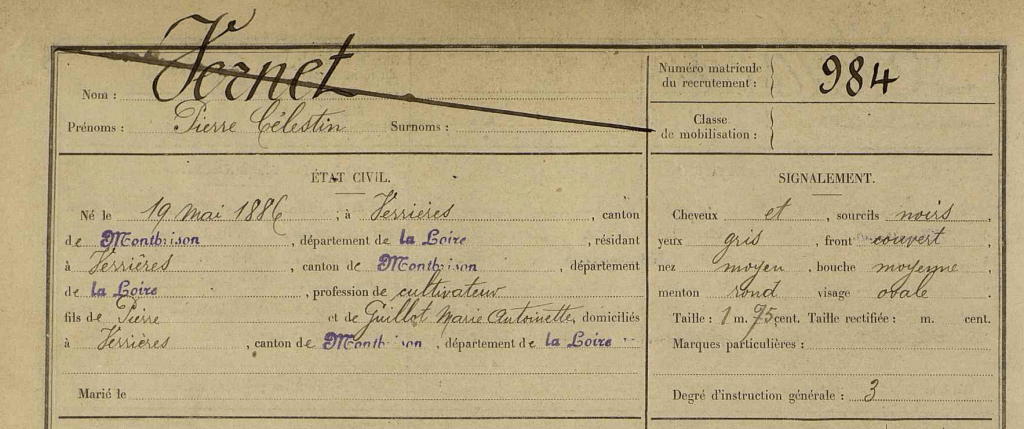 Nom : Vernet
Prénoms : Pierre Célestin Surnoms :
Numéro matricule du recrutement : 984
Classe de mobilisation :
ÉTAT CIVIL.
Né le 19 mai 1886, à Verrières, canton
de Montbrison, département de la Loire, résidant
à Verrières, canton de Montbrison, département
de la Loire, profession de cultivateur
fils de Pierre et de Guillot Marie Antoinette, domiciliés
à Verrières, canton de Montbrison, département de la Loire
Marié le
SIGNALEMENT.
Cheveux et, sourcils noirs,
yeux gris, front couvert
nez moyen, bouche moyenne
menton rond visage ovale.
Taille : 1 m. 75 cent. Taille rectifiée : m. cent.
Marques particulières :
Degré d'instruction générale : 3